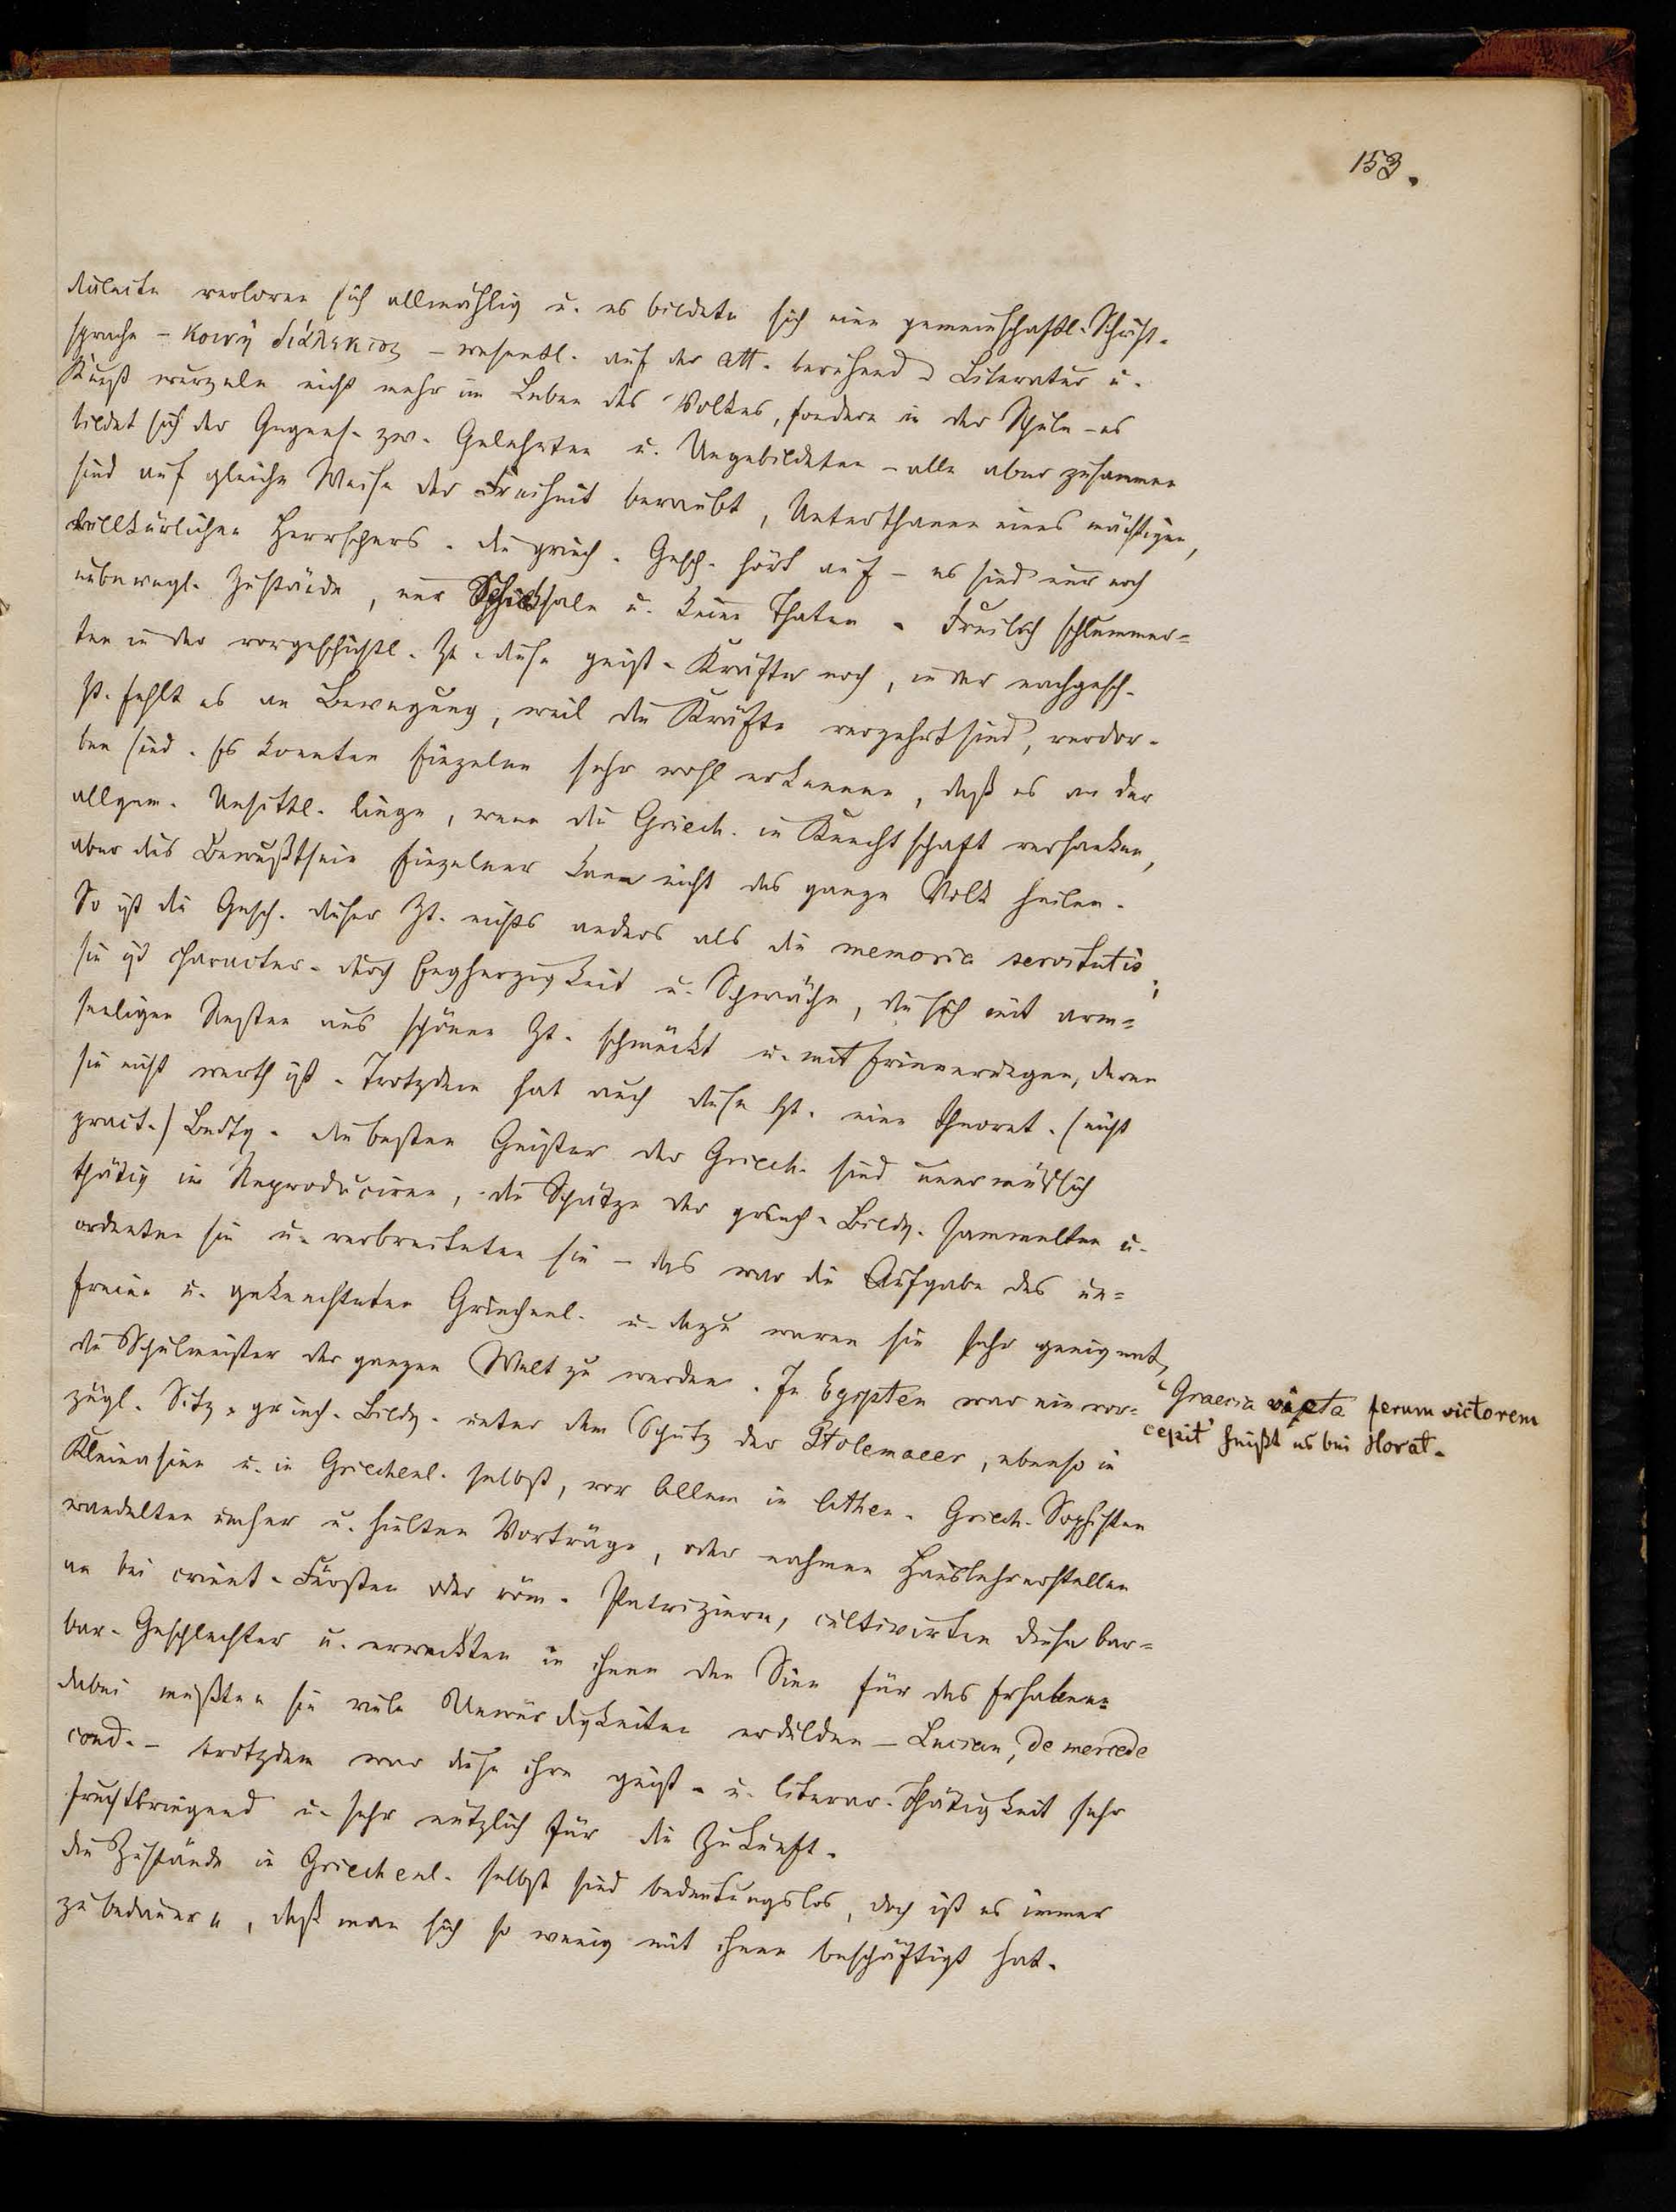 153.
dialecte verloren sich allmählig u. es bildete sich eine gemeinschaftl. Schrift-
sprache – κοινὴ διάλεκτος – wesentl. auf der att. beruhend. Literatur u.
Kunst wurzeln nicht mehr im Leben des Volkes, sondern in der Schule – es
bildet sich der Gegens. zw. Gelehrten u. Ungebildeten – alle aber zusammen
sind auf gleiche Weise der Freiheit beraubt, Unterthanen eines mächtigen,
willkürlichen Herrschers. die griech. Gesch. hört auf – es sind nur noch
unbewegl. Zustände, nur Schicksale u. keine Thaten. Freilich schlummer=
ten in der vorgeschichtl. Zt. diese geist. Kräfte noch, in der nachgesch.
Zt. fehlt es an Bewegung, weil die Kräfte verzehrt sind, verdor-
ben sind. Es konnten Einzelne sehr wohl erkennen, daß es an der
allgem. Unsittl. liege, wenn die Griech. in Knechtschaft versanken,
aber das Bewußtsein Einzelner kann nicht das ganze Volk heilen.
So ist die Gesch. dieser Zt. nichts anders als die memoria servitutis;
sie ist character. durch Engherzigkeit u. Schwäche, die sich mit arm=
seeligen Resten aus schöner Zt. schmückt u. mit Erinnerungen, deren
sie nicht werth ist. Trotzdem hat auch diese Zt. eine theoret. (nicht
pract.) Bedtg. die besten Geister der Griech. sind unermüdlich
thätig im Reproduciren, die Schätze der griech. Bildg. sammelten u.
ordneten sie u. verbreiteten sie – das war die Aufgabe des un=
freien u. geknechteten Griechenl. u. dazu waren sie sehr geeignet,
die Schulmeister der ganzen Welt zu werden. In Egypten war ein vor=
zügl. Sitz griech. Bildg. unter dem Schutz der Ptolemaeer, ebenso in
Kleinasien u. in Griechenl. selbst, vor Allem in Athen. Griech. Sophisten
wandelten umher u. hielten Vorträge, oder nahmen Hauslehrerstellen
an bei orient. Fürsten oder röm. Patriziern, cultivirten diese bar=
bar. Geschlechter u. erweckten in ihnen den Sinn für das Erhabene=
dabei mußten sie viele Unwürdigkeiten erdulden – Lucian, de mercede
cond. – trotzdem war diese ihre geist. u. literar. Thätigkeit sehr
fruchtbringend u. sehr nützlich für die Zukunft.
die Zustände in Griechenl. selbst sind bedeutungslos, doch ist es immer
zu bedauern, daß man sich so wenig mit ihnen beschäftigt hat.
„Graecia victa ferum victorem
cepit“ heißt es bei Horat.